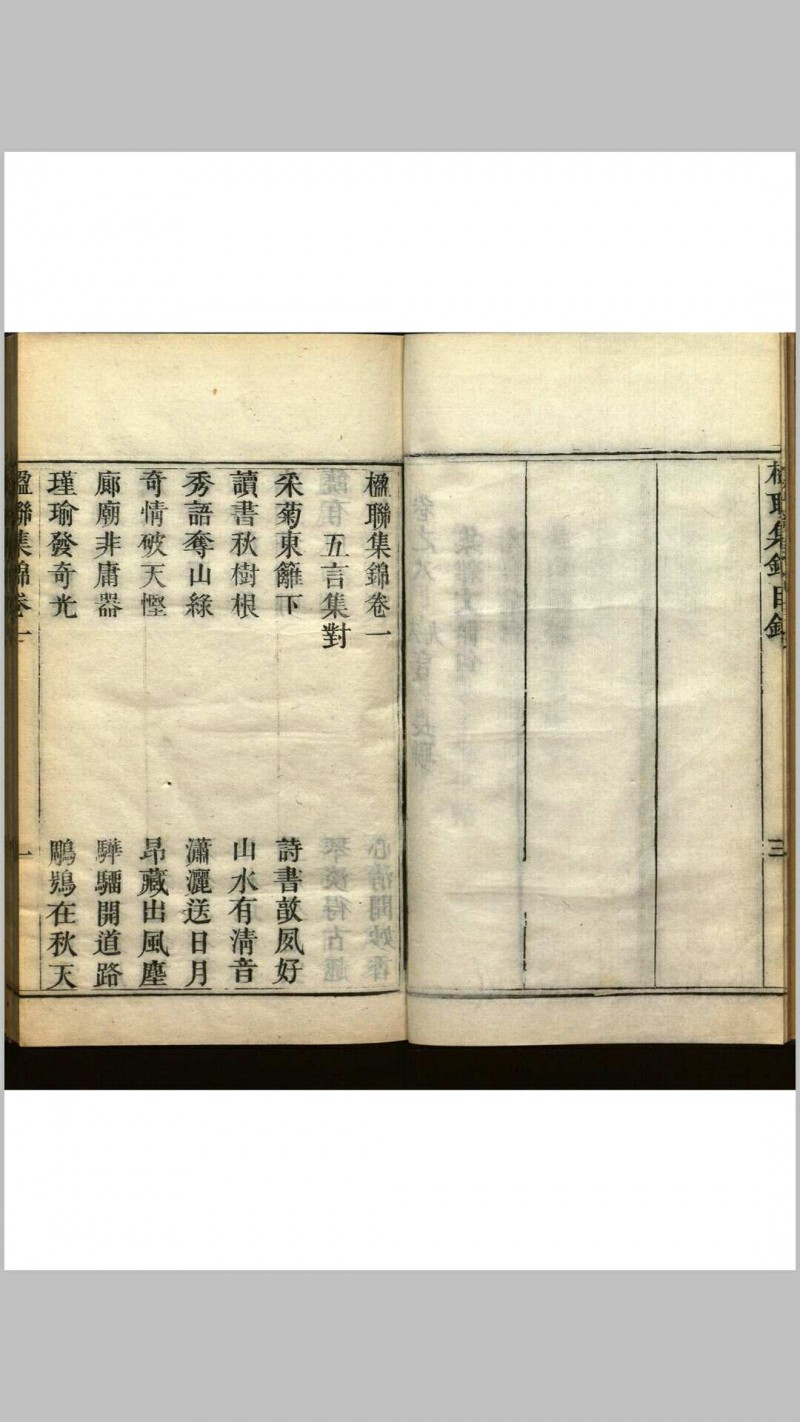 楹聯集錦目錄
三
楹聯集錦卷一
五言集對
采菊東籬下
詩書敦夙好
讀書秋樹根
山水有清音
秀語奪山綠
瀟灑送日月
奇情破天慳
昂藏出風塵
廊廟非庸器
驊騮開道路
瑾瑜發奇光
鵰鶚在秋天
楹聯集錦卷一
一